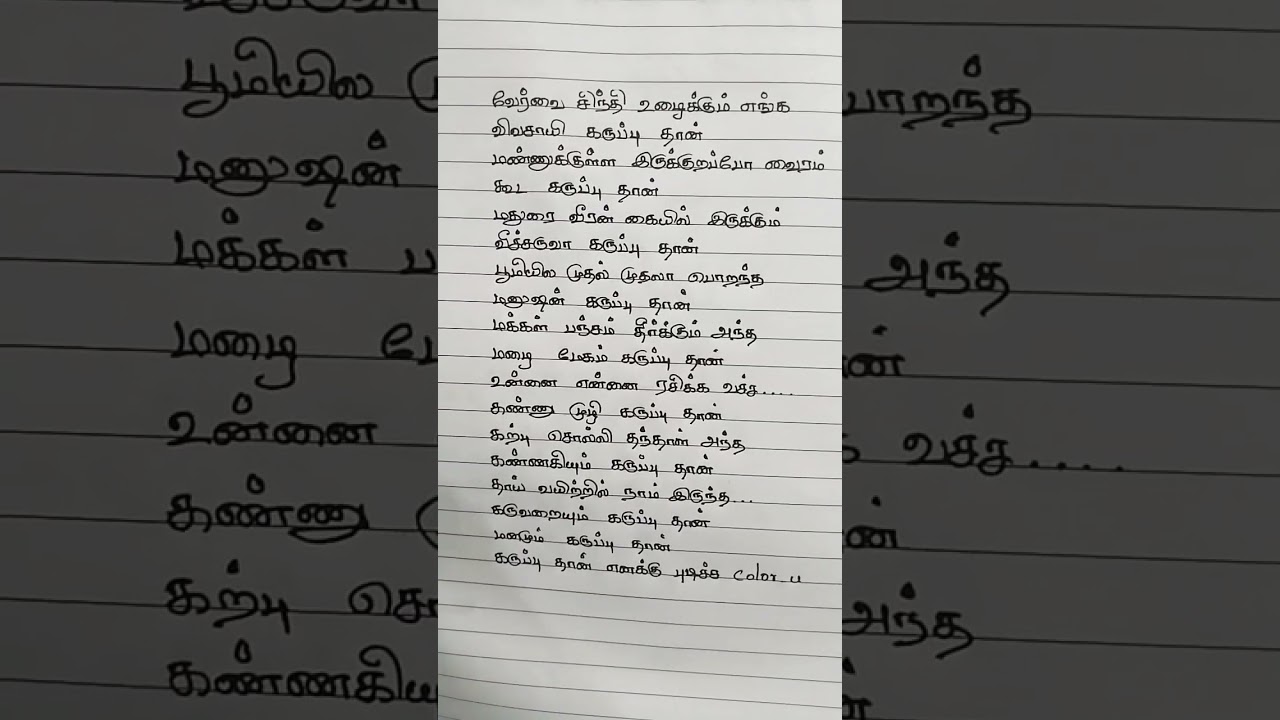 வேர்வை சிந்தி உழைக்கும் எங்க
விவசாயி கருப்பு தான்
மண்ணுக்குள்ள இருக்குறப்போ வைரம்
கூட கருப்பு தான்
மதுரை வீரன் கையில் இருக்கும்
வீச்சருவா கருப்பு தான்
பூமியில முதல் முதலா பொறந்த
மனுஷன் கருப்பு தான்
மக்கள் பஞ்சம் தீர்க்கும் அந்த
மழை மேகம் கருப்பு தான்
உன்னை என்னை ரசிக்க வச்ச....
கண்ணு முழி கருப்பு தான்
கற்பு சொல்லி தந்தாள் அந்த
கண்ணகியும் கருப்பு தான்
தாய் வயிற்றில் நாம் இருந்த...
கருவறையும் கருப்பு தான்
மனமும் கருப்பு தான்
கருப்பு தான் எனக்கு புடிச்ச color u